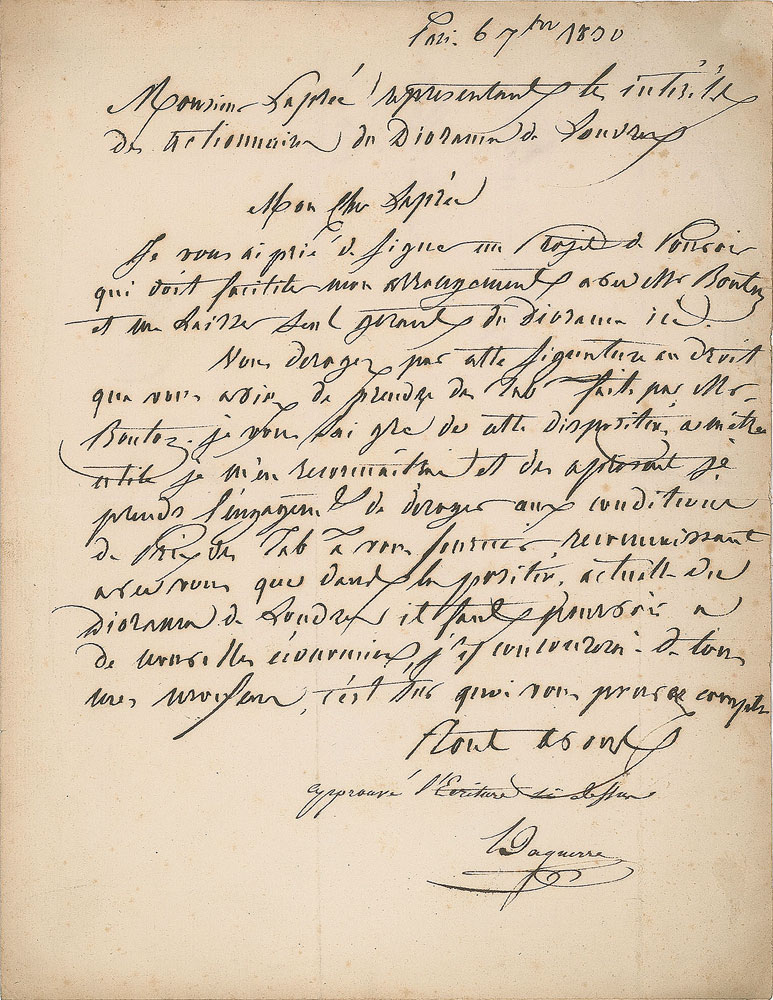 Paris 6 7bre 1830
Monsieur Laprée représentant les intérêts
des actionnaires du Diorama de Londres
Mon Cher Laprée
Je vous ai prié de signer un Projet de Pouvoir
qui doit faciliter mon arrangement avec Mr Bouton
et me laisser seul gerant du Diorama ici.
Vous derogez par cette signature au droit
que vous aviez de prendre des Tabx faits par Mr
Bouton. je vous sai gré de cette disposition à m'être
utile je m'en reconnaitrai et dès aprésent je
prends l'engagemt de deroger aux conditions
de Prix des Tabx à vous fournir, reconnaissant
avec vous que dans la position actuelle du
Diorama de Londres il faut pourvoir a
de nouvelles économies, j'y concourerai de tous
mes moyens, c'est sur quoi vous pouvez compter
tout à vous
approuvé l'Ecriture ci dessus
Daguerre